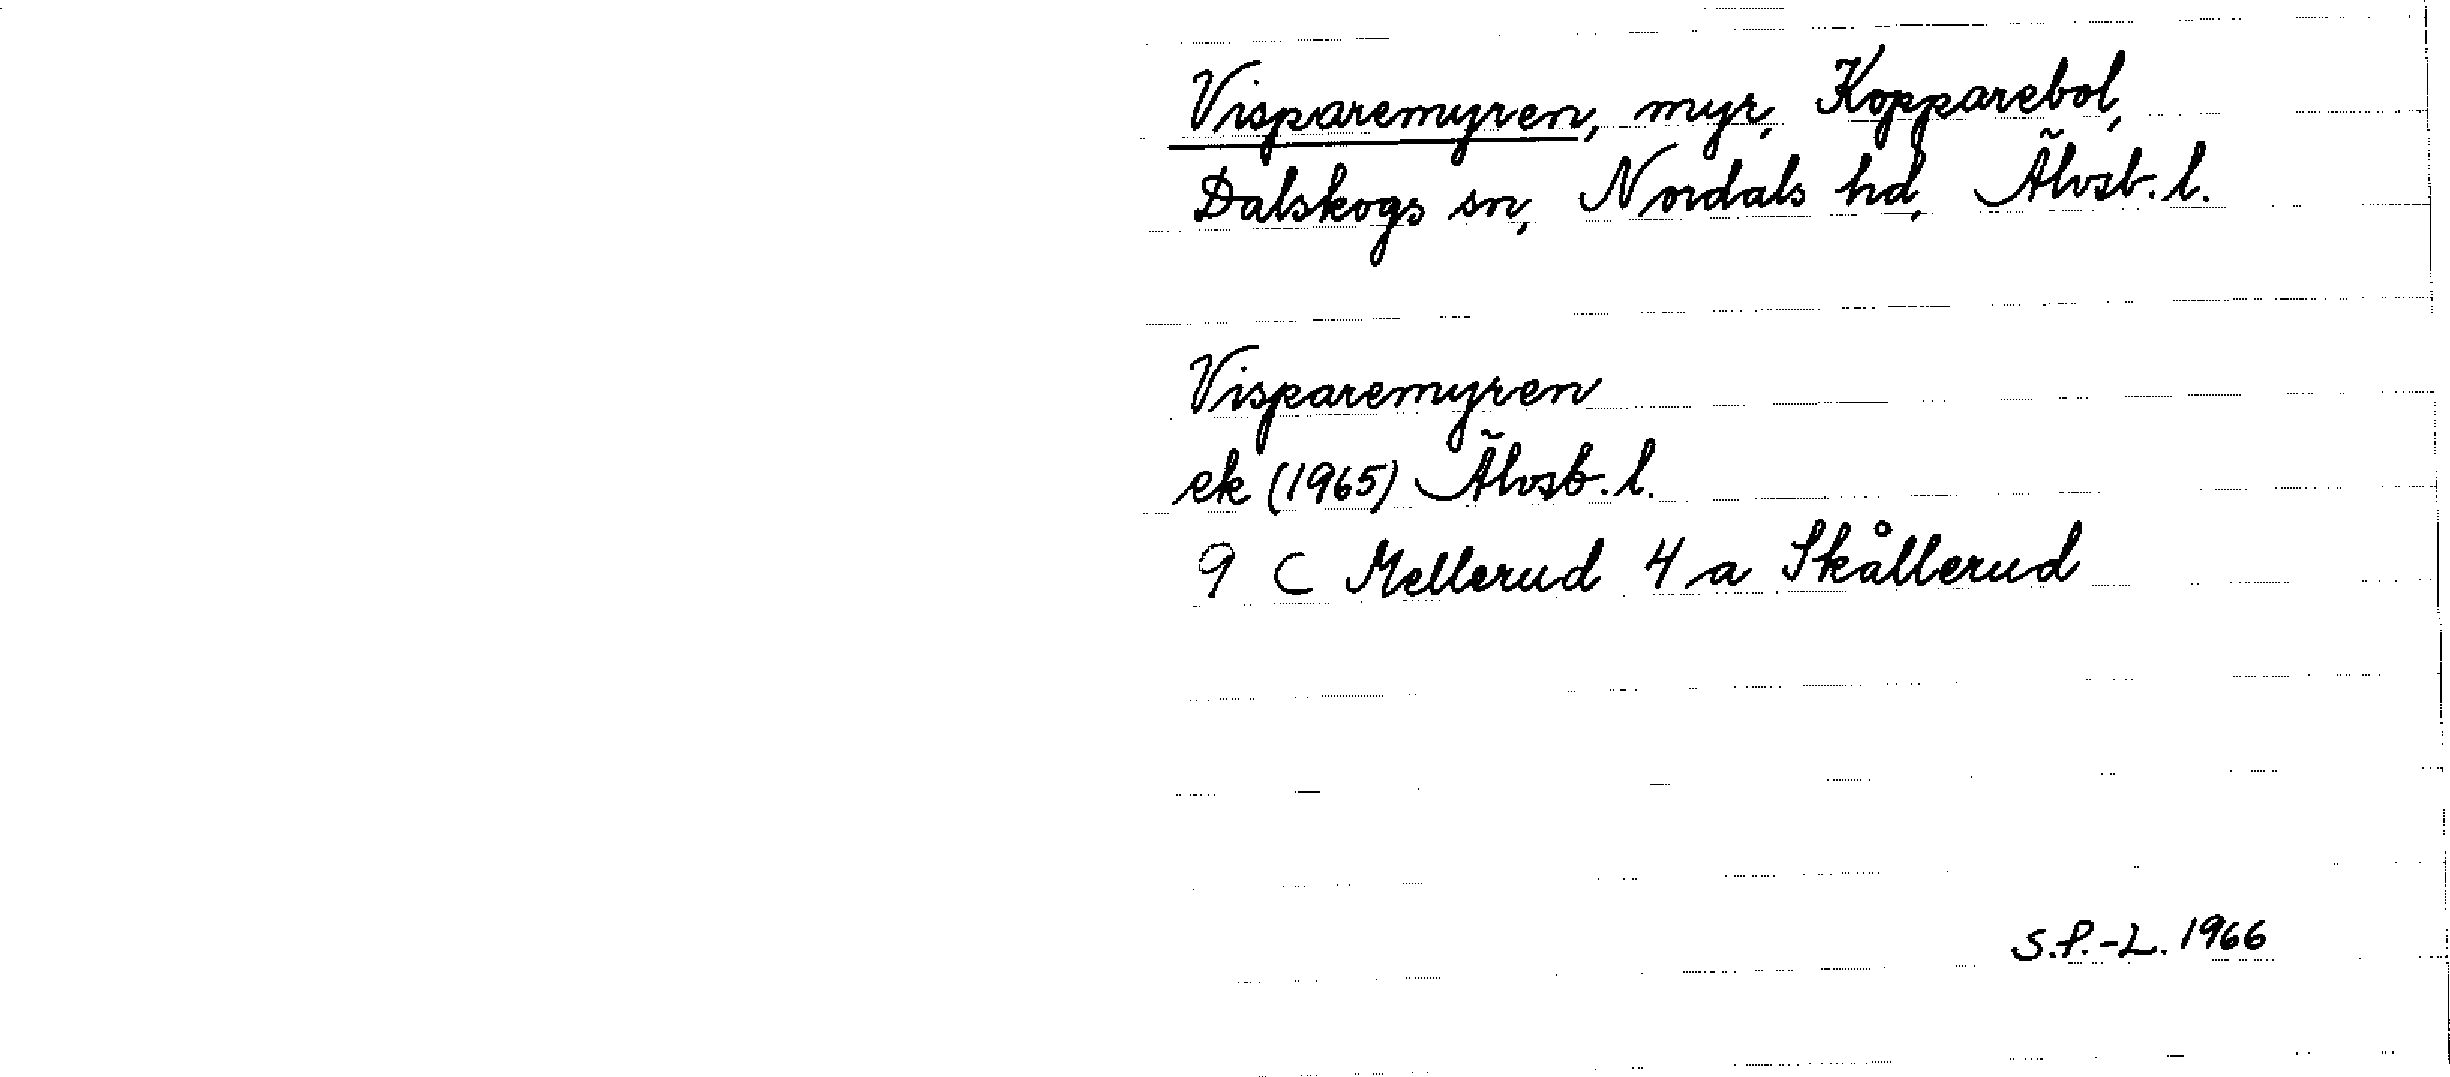 Visparemyren, myr, Kopparebol,
Dalskogs sn, Nordals hd, Älvsb. l.
Visparemyren
ek (1965) Älvsb. l.
9 C Mellerud 4 a Skållerud
S.P.-L. 1966